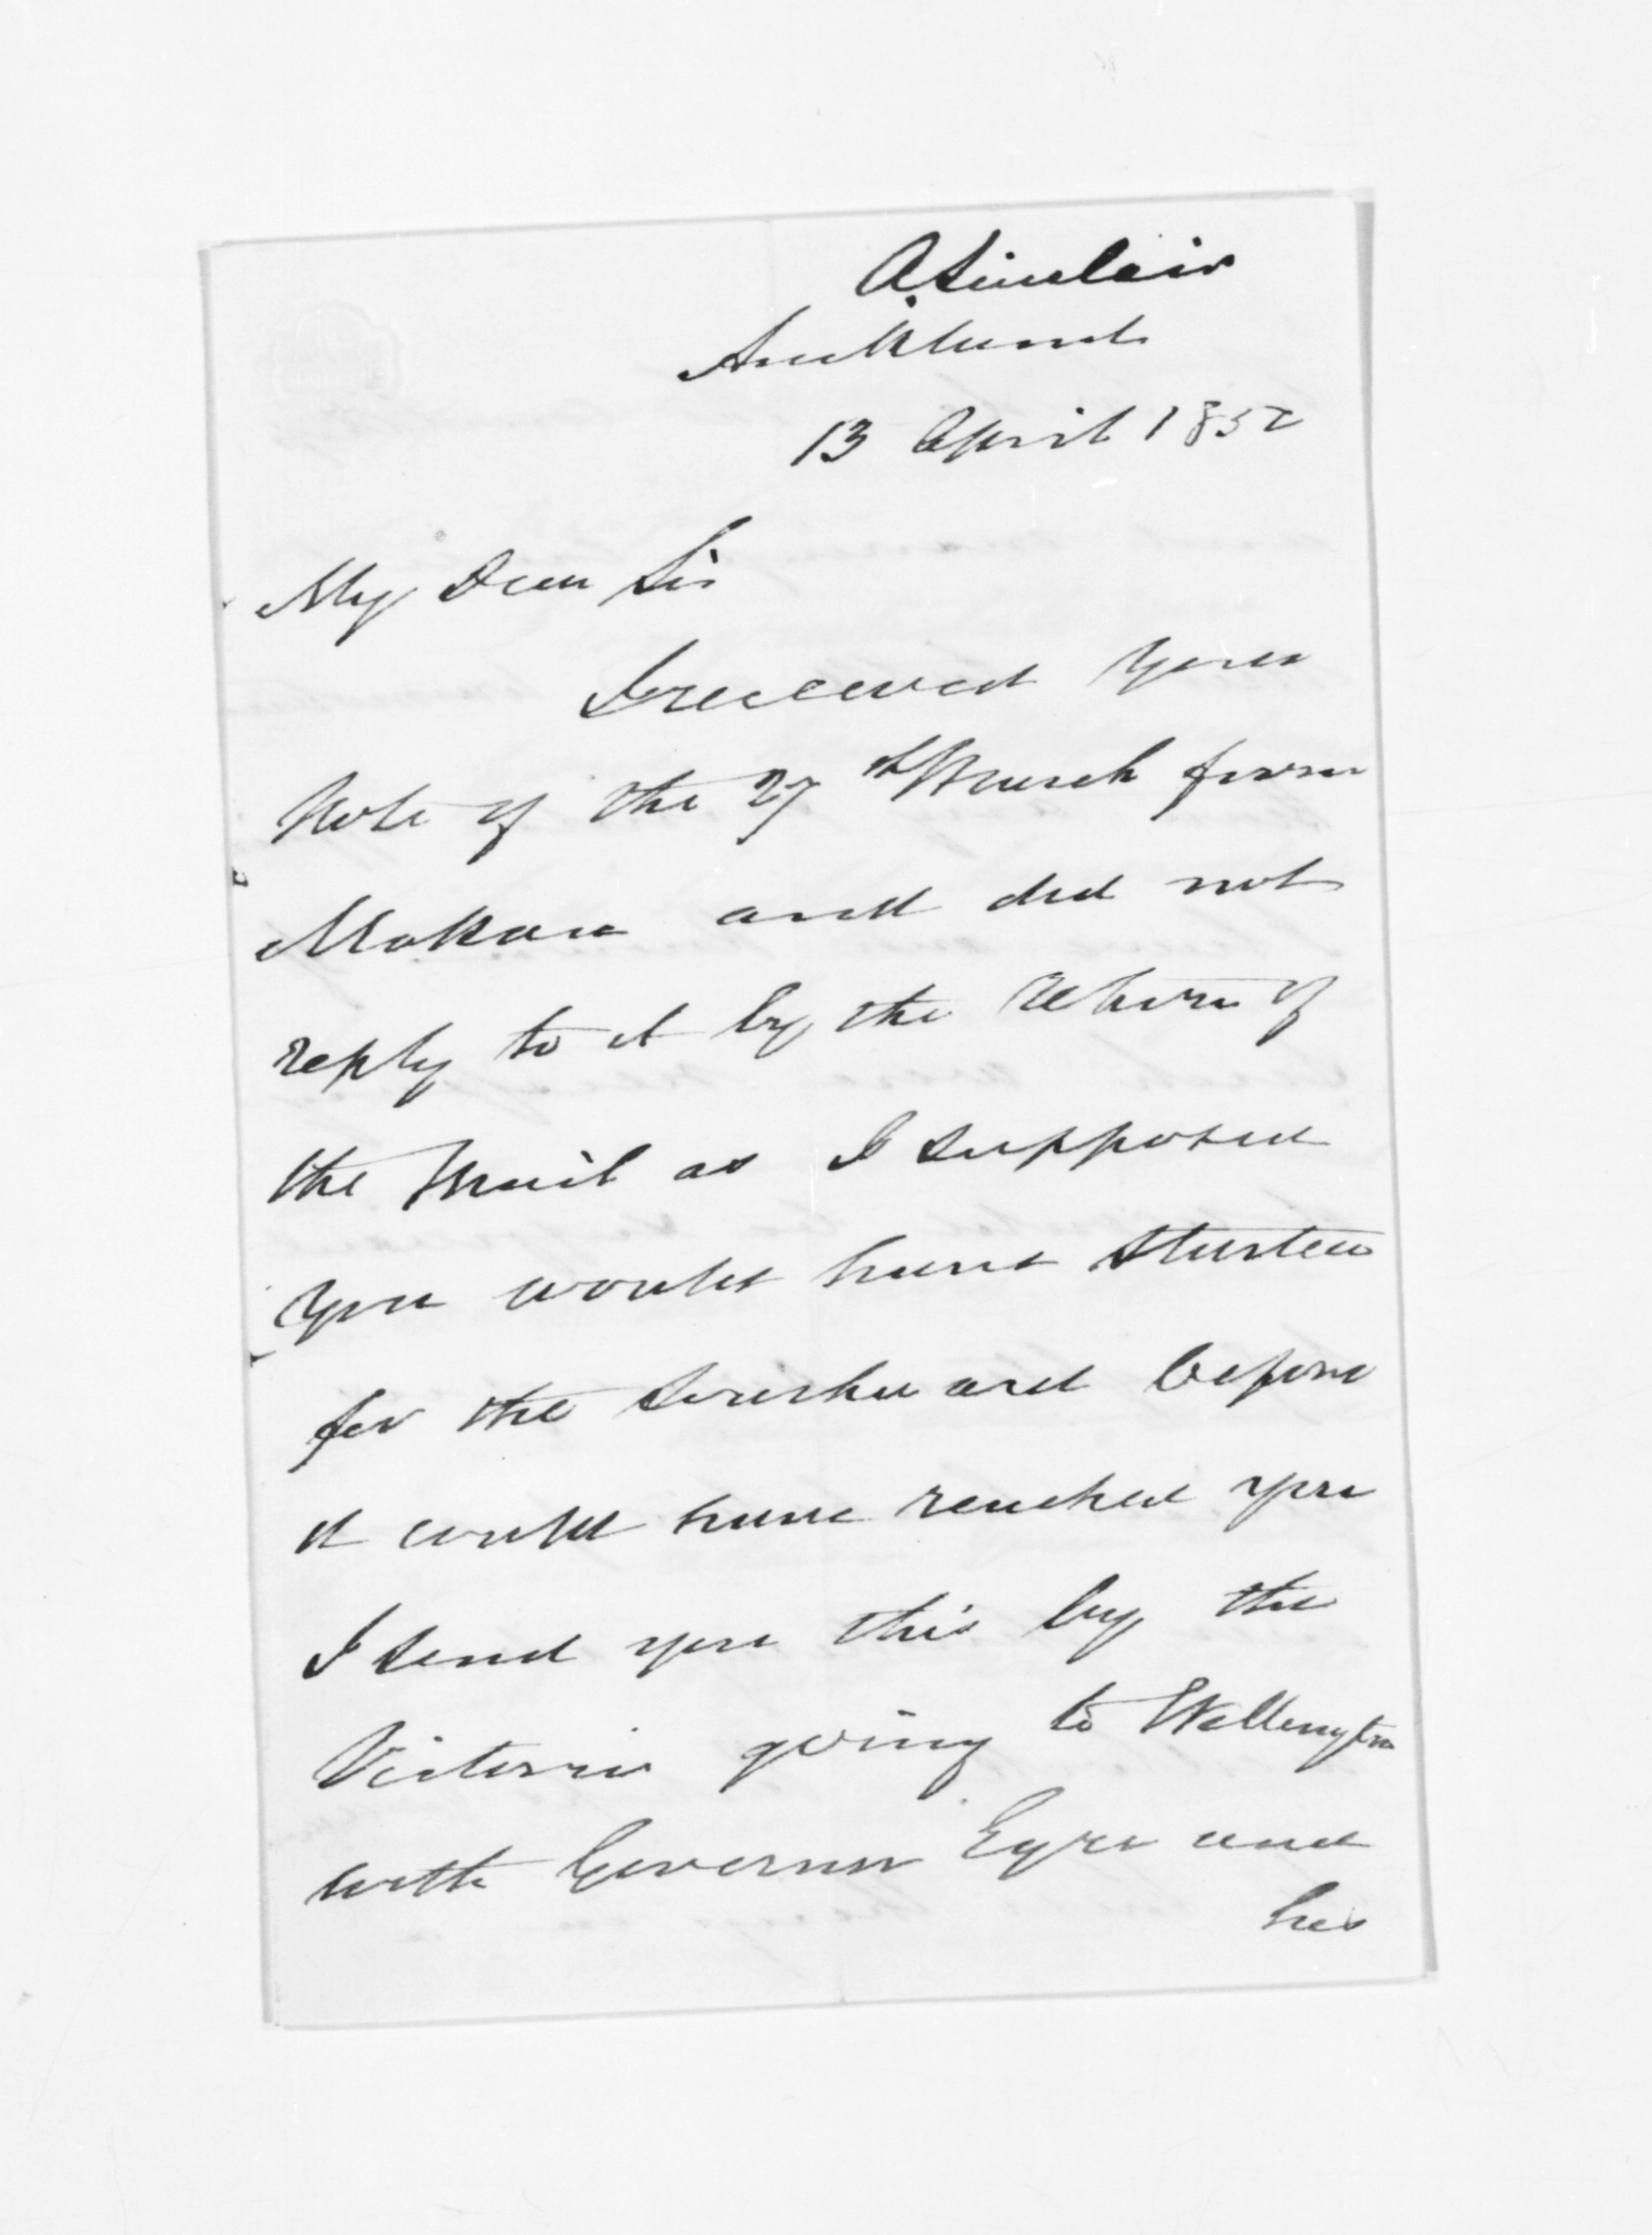 A. Sinclair
Auckland
13 April 1852
My Dear Sir
I received your
Note of the 27th March from
Mokau and did not
reply to it by the return of
the Mail as I supposed
you would have started
for the Southward before
it could have reached you
I send you this by the
Victoria going to Wellington
with Governor Eyre and
his